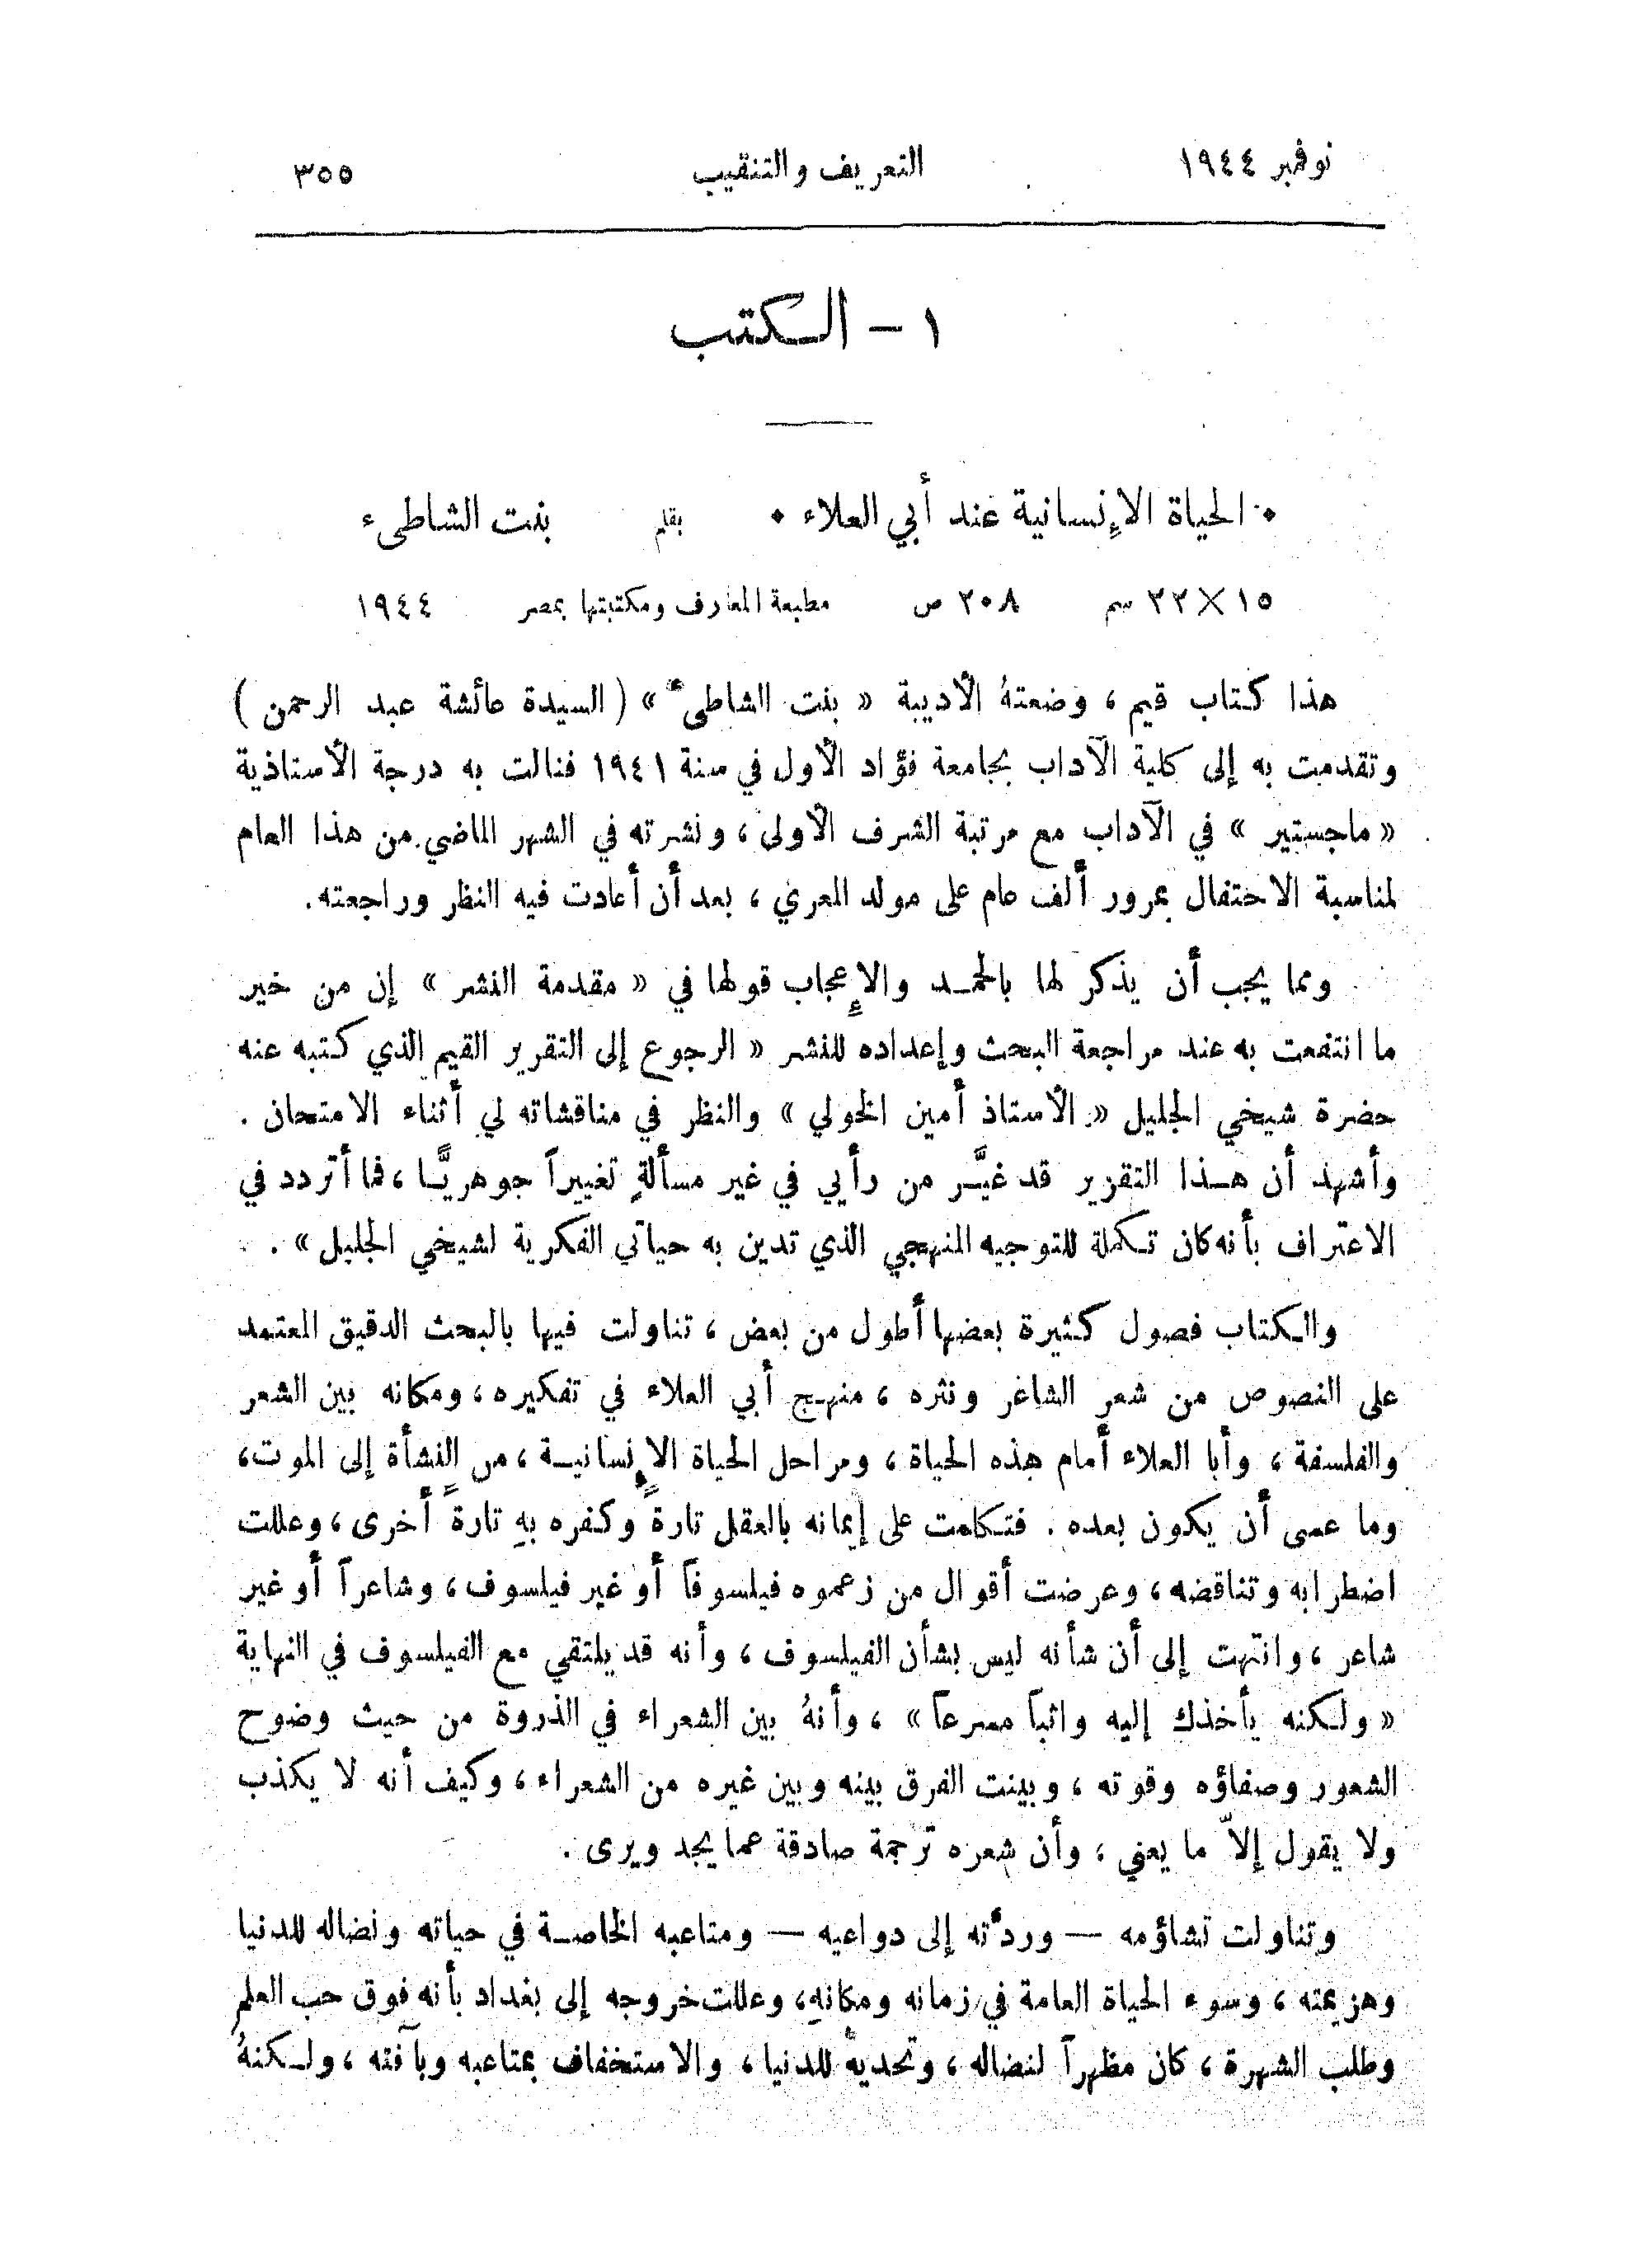 نوفمبر ١٩٤٤ التعريف والتنقيب ٣٥٥
١ - الكتب
• الحياة الإنسانية عند أبي العلاء • بقلم بنت الشاطىء
١٥ × ٢٢ سم ٢٠٨ ص مطبعة المعارف ومكتبتها بمصر ١٩٤٤
هذا كتاب قيم ، وضعتهُ الأديبة « بنت الشاطىء » ( السيدة عائشة عبد الرحمن )
وتقدمت به إلى كلية الآداب بجامعة فؤاد الأول في سنة ١٩٤١ فنالت به درجة الأستاذية
« ماجستير » في الآداب مع مرتبة الشرف الأولى ، ونشرته في الشهر الماضي من هذا العام
لمناسبة الاحتفال بمرور ألف عام على مولد المعري ، بعد أن أعادت فيه النظر وراجعته .
ومما يجب أن يذكر لها بالحمد والإعجاب قولها في « مقدمة النشر » إن من خير
ما انتفعت به عند مراجعة البحث وإعداده للنشر « الرجوع إلى التقرير القيم الذي كتبه عنه
حضرة شيخي الجليل « الأستاذ أمين الخولي » والنظر في مناقشاته لي أثناء الامتحان .
وأشهد أن هذا التقرير قد غيَّر من رأيي في غير مسألةٍ تغييراً جوهريًّا ، فما أتردد في
الاعتراف بأنه كان تكملة للتوجيه المنهجي الذي تدين به حياتي الفكرية لشيخي الجليل » .
والكتاب فصول كثيرة بعضها أطول من بعض ، تناولت فيها بالبحث الدقيق المعتمد
على النصوص من شعر الشاعر ونثره ، منهج أبي العلاء في تفكيره ، ومكانه بين الشعر
والفلسفة ، وأبا العلاء أمام هذه الحياة ، ومراحل الحياة الإنسانية ، من النشأة إلى الموت ،
وما عسى أن يكون بعده . فتكلمت على إيمانه بالعقل تارةً وكفره بهِ تارةً أخرى ، وعللت
اضطرابه وتناقضه ، وعرضت أقوال من زعموه فيلسوفاً أو غير فيلسوف ، وشاعراً أو غير
شاعر ، وانتهت إلى أن شأنه ليس بشأن الفيلسوف ، وأنه قد يلتقي مع الفيلسوف في النهاية
« ولكنه يأخذك إليه واثباً مسرعاً » ، وأنهُ بين الشعراء في الذروة من حيث وضوح
الشعور وصفاؤه وقوته ، وبينت الفرق بينه وبين غيره من الشعراء ، وكيف أنه لا يكذب
ولا يقول إلاّ ما يعني ، وأن شعره ترجمة صادقة عما يجد ويرى .
وتناولت تشاؤمه — وردّته إلى دواعيه — ومتاعبه الخاصة في حياته ونضاله للدنيا
وهزيمته ، وسوء الحياة العامة في زمانه ومكانهِ ، وعللت خروجه إلى بغداد بأنه فوق حب العلم
وطلب الشهرة ، كان مظهراً لنضاله ، وتحديه للدنيا ، والاستخفاف بمتاعبه وبآفته ، ولكنهُ